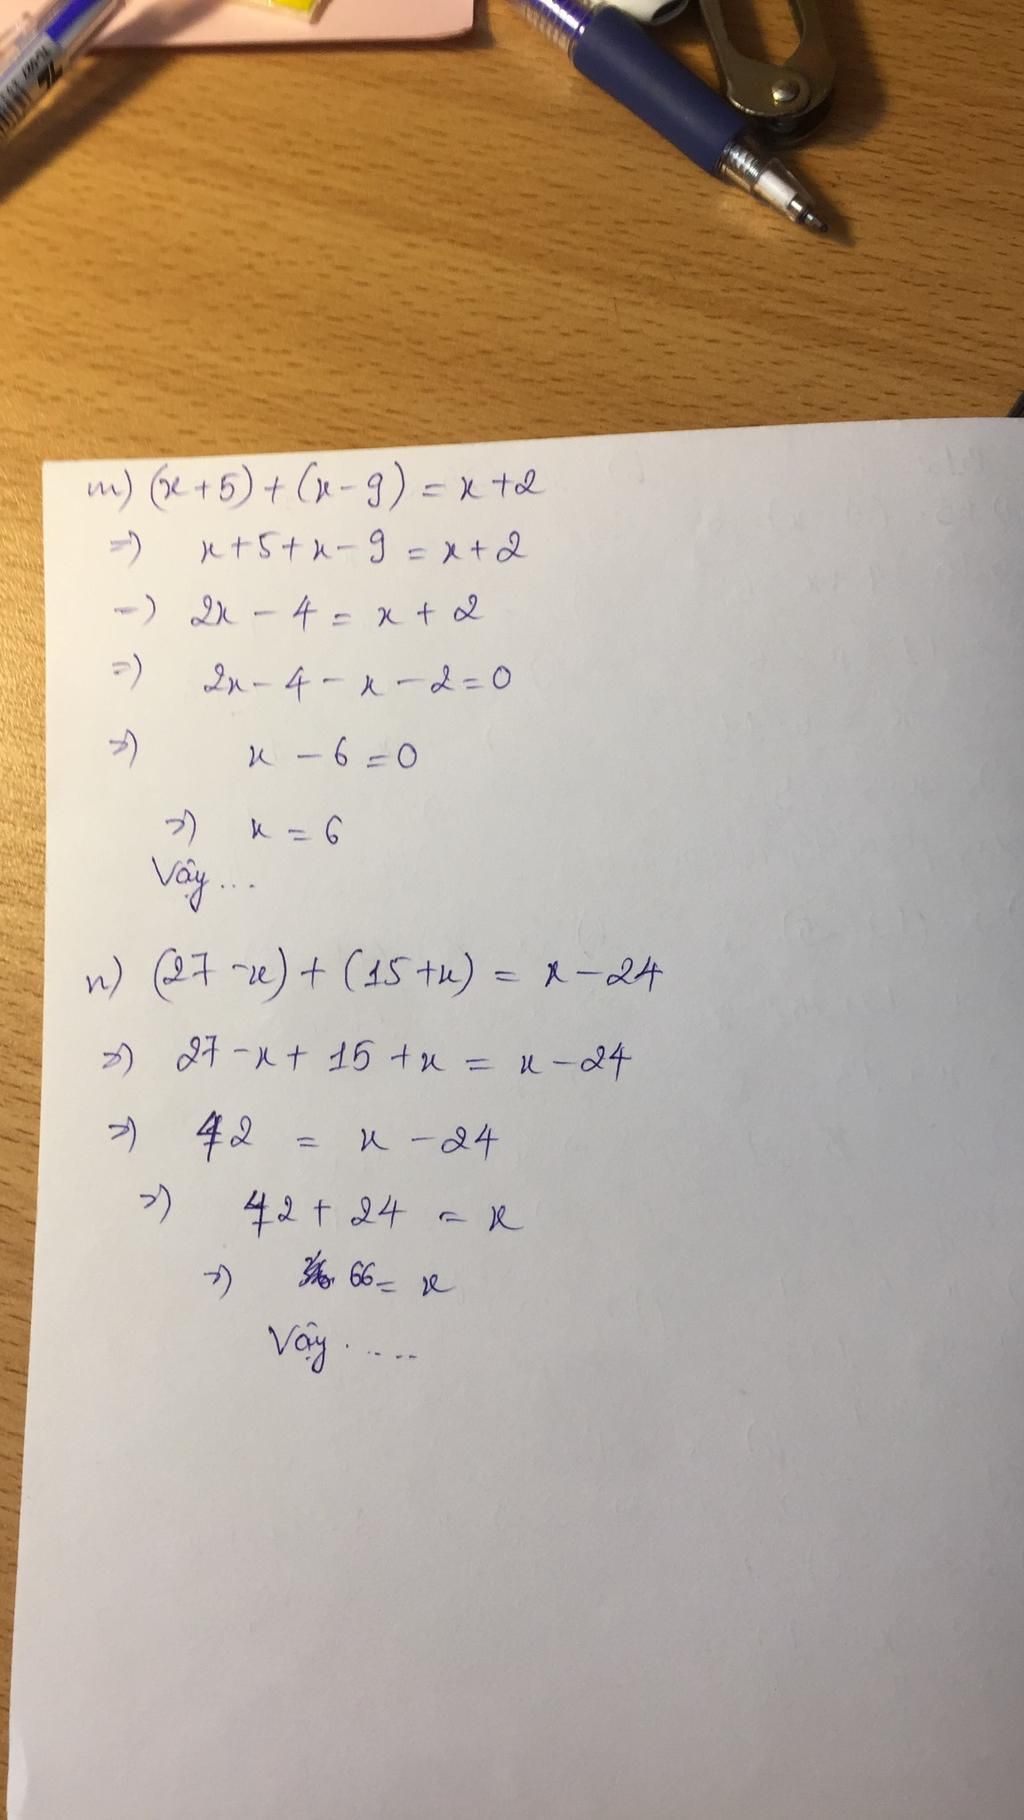 m) (x+5)+(x-9) = x+2
=) x+5+x-9 = x+2
-) 2x - 4 = x + 2
=) 2x - 4 - x - 2 = 0
=) x - 6 = 0
=) x = 6
Vậy...
n) (27-x)+(15+x) = x-24
=) 27-x+15+x = x-24
=) 42 = x-24
=) 42+24 = x
=) 66 = x
Vậy .....